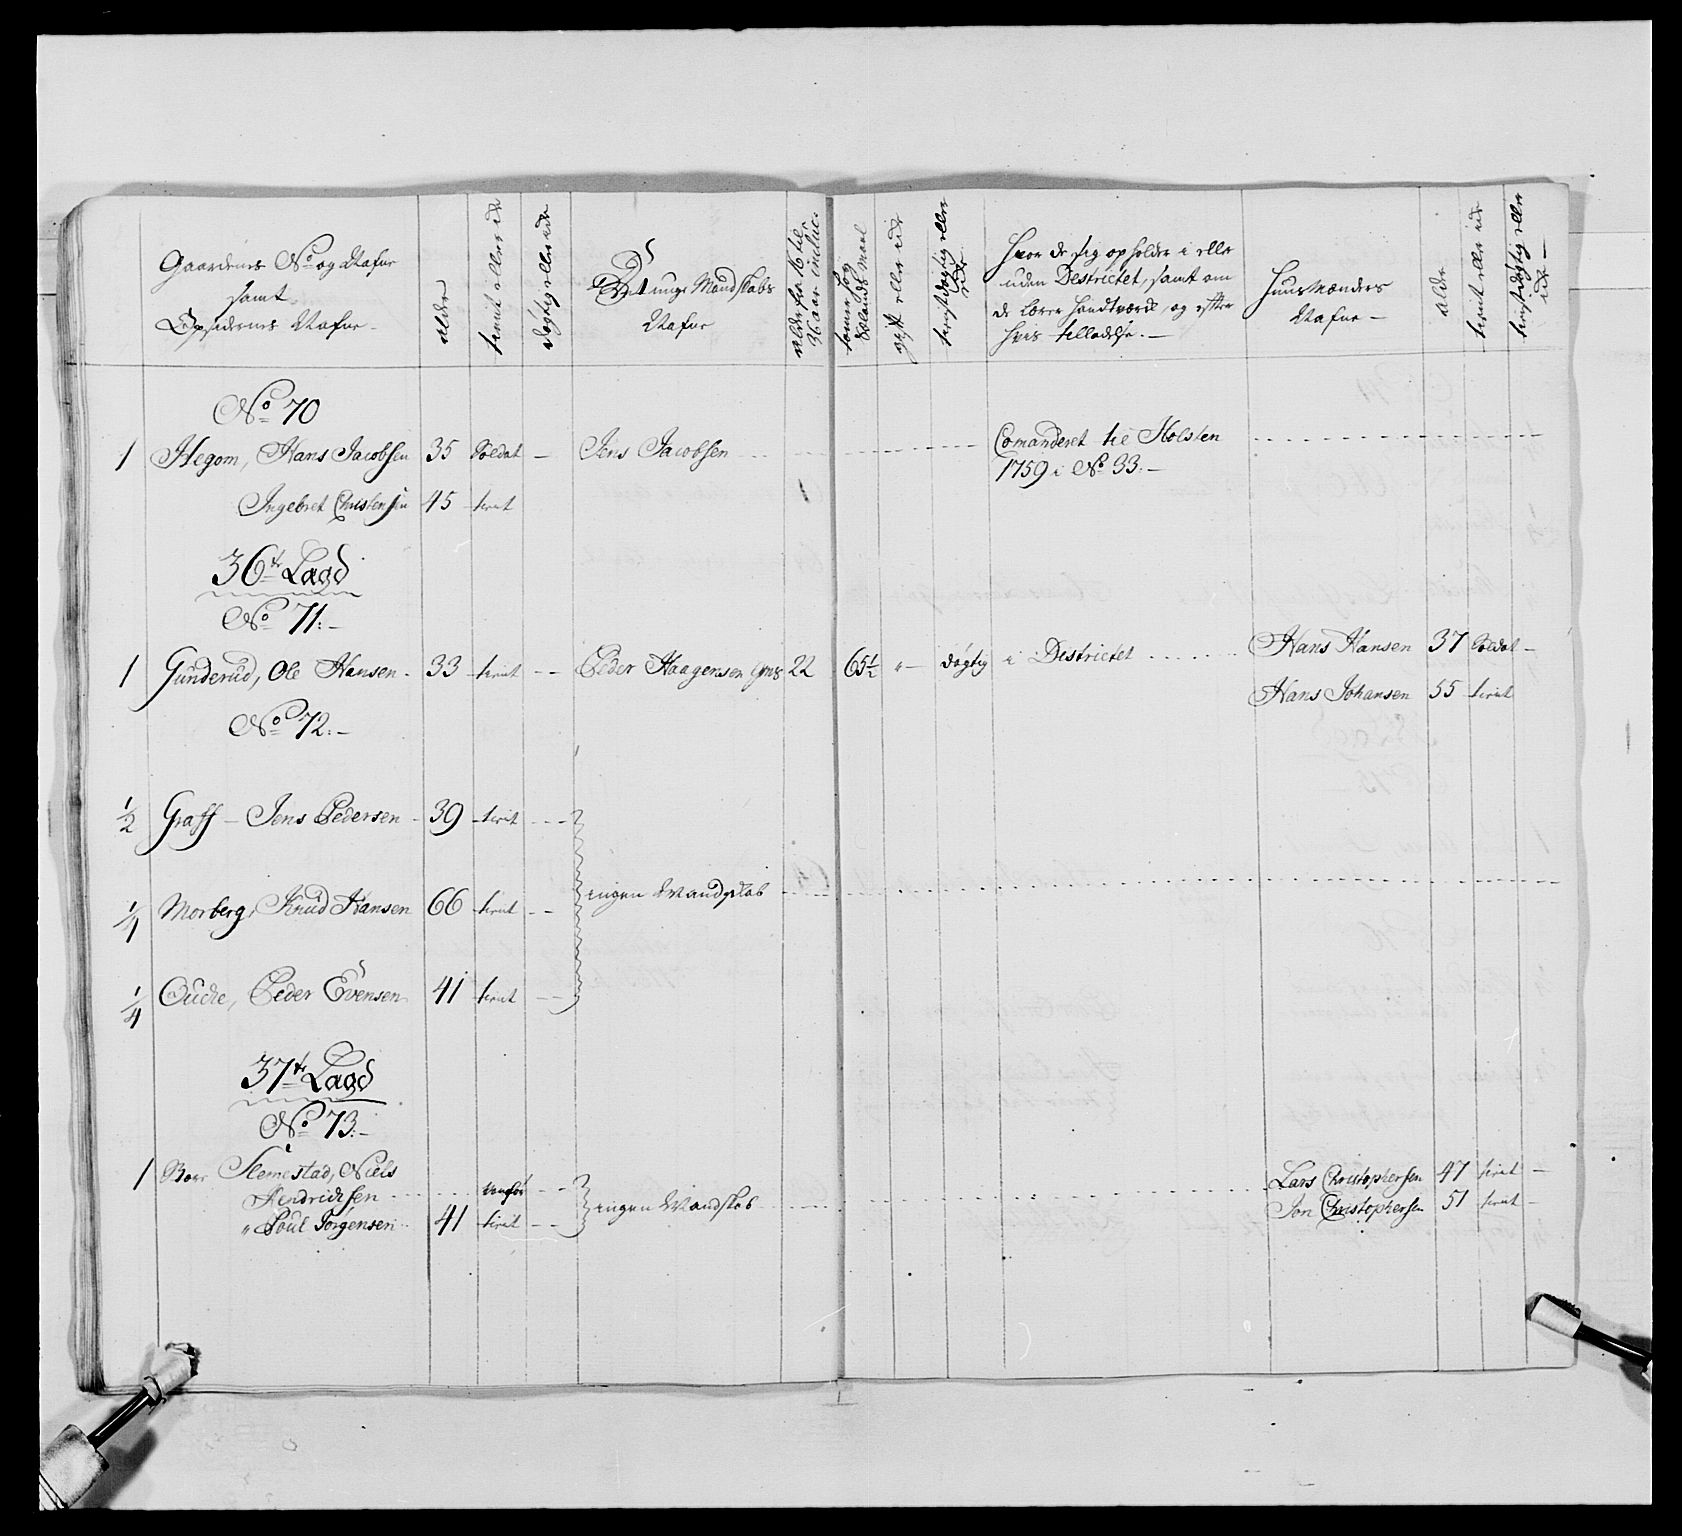 Gaardenes No og Nafne
samt
Opsidernes Nafne
alder
tient eller ei
dögtig eller ei
Det unge Mandskabs
Nafne
alder fra 16 til
36 aar inclus.
tomer og
Volands maal
gift eller ei
Hvor de sig opholder i eller
uden Destrictet, samt om
de lærer Handtværck og efter
hvis tilladelse.—
Huusmænders
Nafne —
alder
tient eller ei
No 70
1 Hegom, Hans Jacobsen 35 Soldat — Jens Jacobsen Comanderet til Holsten
1759 i No 33:—
Ingebret Christensen 45 tient
36te Lægd
No 71:—
1 Gunderud, Ole Hansen. 33 tient — Peder Haagensen 22 65½ „ — dögtig i Destrictet Hans Hansen 37 Soldat —
Hans Johansen 55 tient
No 72:—
½ Graff — Jens Pedersen 39 tient
ingen Mandskab
¼ Morberg, Knud Hansen 66 tient
¼ Peder Evensen 41 tient
37te Lægd
No 73:—
1 Slemestad, Niels
Hendrichsen
„ Poul Jörgensen 41 tient
ingen Mandskab
Lars Christophersen 47 tient —
Jon Christophersen 51 tient —